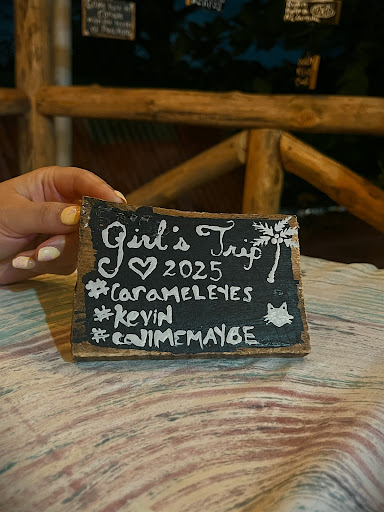 Girl's Trip
♡ 2025
#CARAMELEYES
#KEVIN
#CALLMEMAYBE